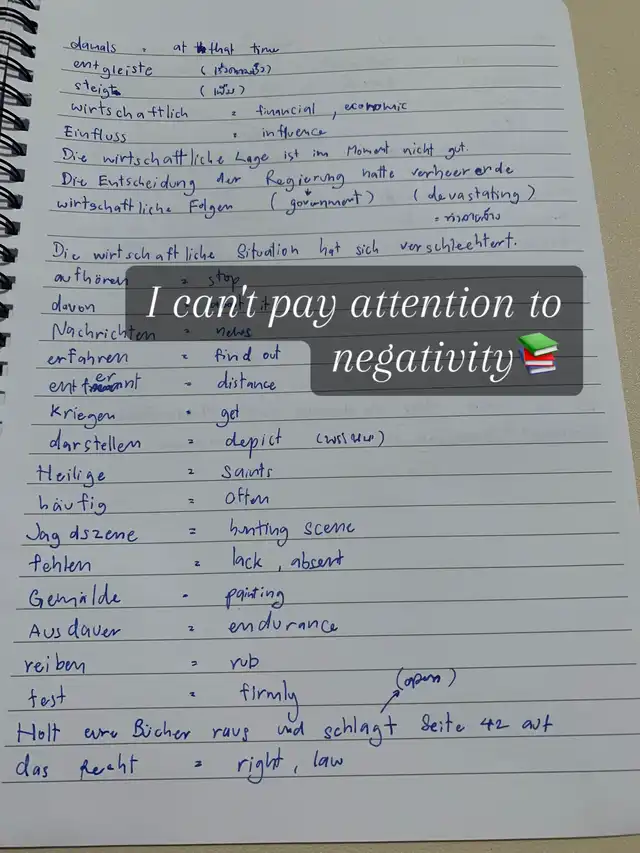 damals = at that time
entgleiste
steigt
wirtschaftlich = financial, economic
Einfluss = influence
Die wirtschaftliche Lage ist im Moment nicht gut.
Die Entscheidung der Regierung hatte verheerende
wirtschaftliche Folgen (government) (devastating)
Die wirtschaftliche Situation hat sich verschlechtert.
aufhören = stop
davon
Nachrichten = news
I can't pay attention to
negativity📚
erfahren = find out
entfernt = distance
kriegen = get
darstellen = depict
Heilige = saints
häufig = often
Jagdszene = hunting scene
fehlen = lack, absent
Gemälde = painting
Ausdauer = endurance
reiben = rub
fest = firmly
(open)
Holt eure Bücher raus und schlagt Seite 42 auf
das Recht = right, law